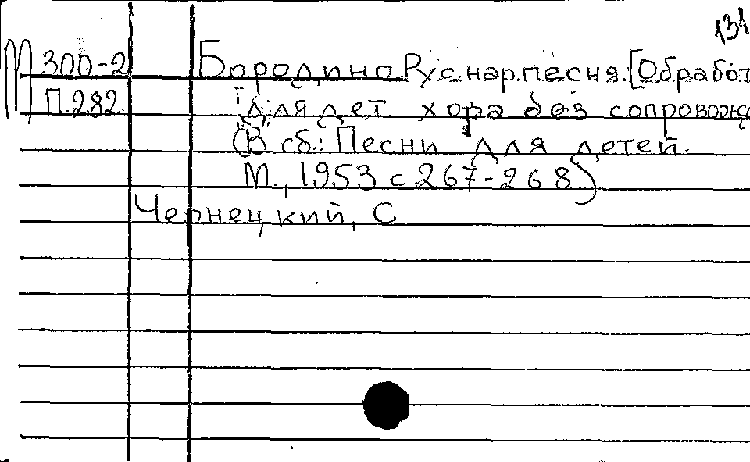 131
М 300-2 Бородино Рус нар. песня. [Обработ
П.282 для дет хора без сопровожд
(В сб.: Песни для детей.
М., 1953 с 267-268)
Чернецкий, С